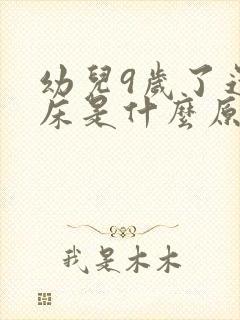 幼兒9歲了還
床是什麼原
我是木木